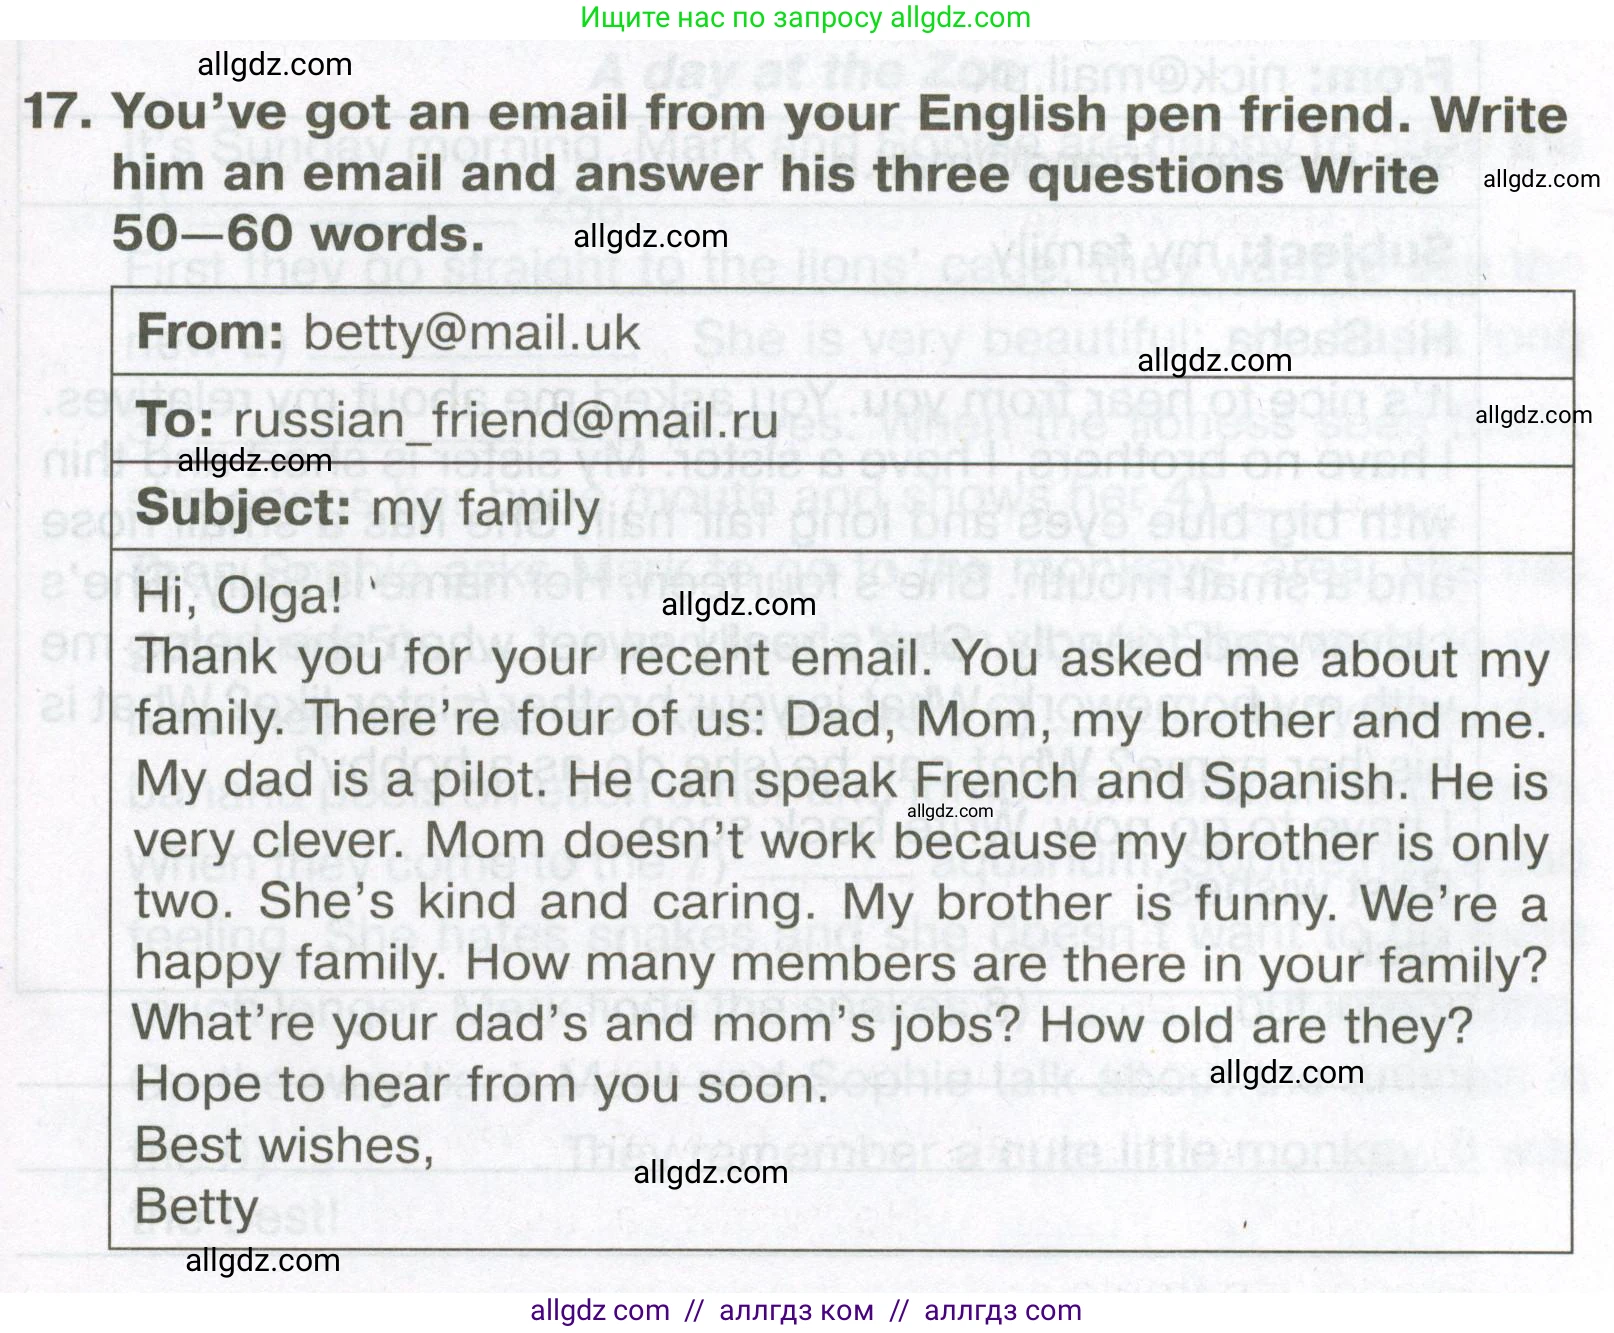 Ищите нас по запросу allgdz.com
allgdz.com
17. You've got an email from your English pen friend. Write
him an email and answer his three questions Write
allgdz.com
50—60 words.
allgdz.com
From: betty@mail.uk
allgdz.com
To: russian_friend@mail.ru
allgdz.com
allgdz.com
Subject: my family
Hi, Olga!
allgdz.com
Thank you for your recent email. You asked me about my
family. There're four of us: Dad, Mom, my brother and me.
My dad is a pilot. He can speak French and Spanish. He is
allgdz.com
very clever. Mom doesn't work because my brother is only
two. She's kind and caring. My brother is funny. We're a
happy family. How many members are there in your family?
What're your dad's and mom's jobs? How old are they?
allgdz.com
Hope to hear from you soon.
Best wishes,
allgdz.com
Betty
allgdz.com
allgdz com // аллгдз ком // аллгдз com